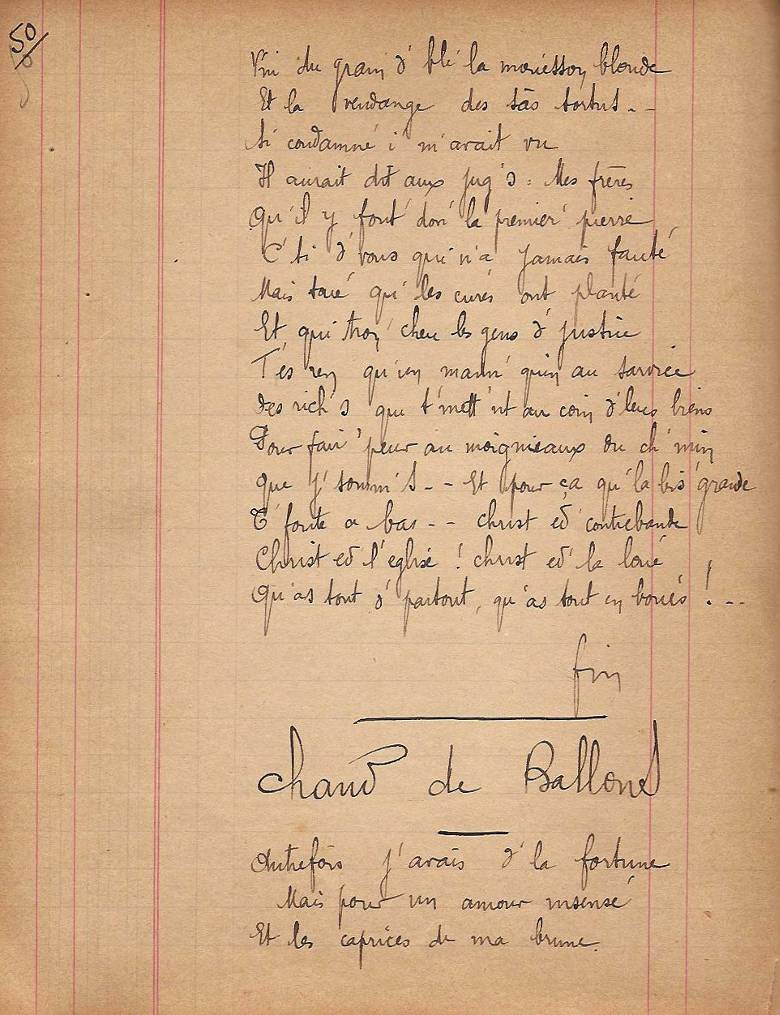 50
Vni du grain d' blé la moriesson blonde
Et la vendange des sâs tortus - -
Si condamné i' m'avait vu
Il aurait dit aux jug's : Mes frères
Qu'il y font' don' la premier' pierre
C'ti d'vous qui n'a jamais fauté
Mais taué qu' les curés ont planté
Et qui cheu les gens d' justice
T'és ren qu'un mann' quin au sarvice
Des rich's qui t'mett'nt au coin d'leus biens
Pour fair' peur au moigneaux du ch'min
Que j'somm's - - Et pour ça qu'la bis' grande
T' foute a bas - - christ ed' contrebande
Christ ed l'eglisé ! christ ed' la loué
Qu'as tout d' partout, qu'as tout en boués ! - -
fin
Chand de Ballons
Autrefois j'avais d' la fortune
Mais pour un amour insensé
Et les caprices de ma brune.